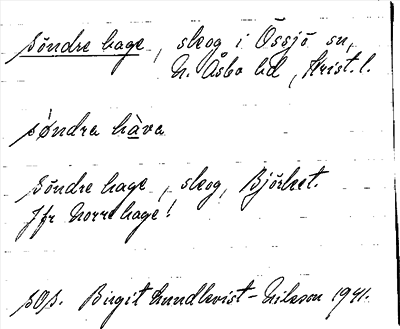 Söndre hage, skog i Össjö sn,
N. Åsbo hd, Krist. l.
søndra hàva
Söndre hage, skog, Björket.
Jfr Norrehage!
sOp. Birgit Lundkvist-Nilsson 1941.